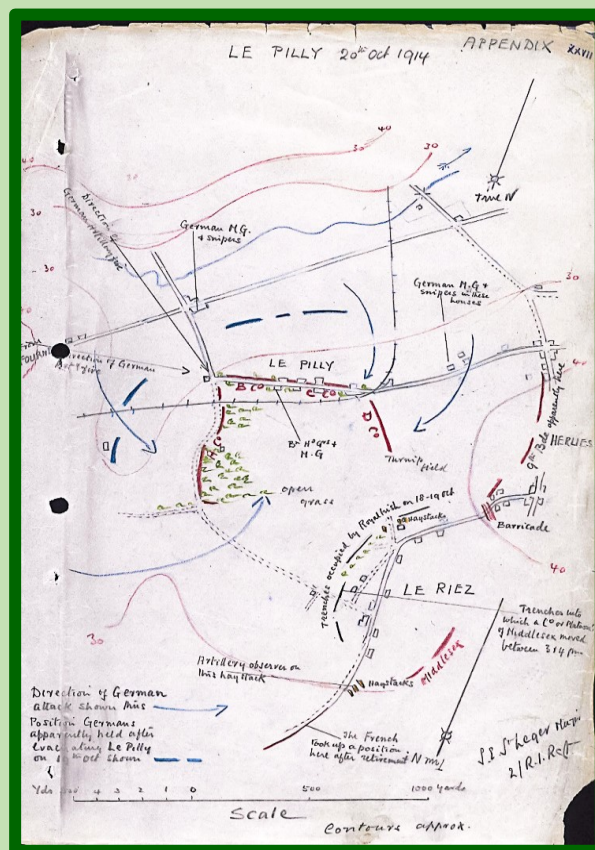 LE PILLY 20th Oct 1914
APPENDIX XXVII
40
30
30
40
30
30
30
True N
Direction of
German
German M.G.
+ snipers
German M.G +
snipers in these
houses
30
Direction of German
LE PILLY
B Co
C Co
D Co
Bn Hd Qrs +
M.G
Turnip
field
40
9th Bde apparently here
HERLIES
open
grass
Trenches occupied by Royal Irish on 18-19 Oct
Haystacks
Barricade
40
LE RIEZ
30
Trenches into
which a Co or Platoon
of Middlesex moved
between 3+4 pm
Artillery observer on
this haystack
Middlesex
Haystacks
Direction of German
attack shown thus
Position Germans
apparently held after
evacuating Le Pilly
on Oct shown
The French
took up a position
here after retirement
N
S.E. St Leger Major
2/R.I. Regt
Yds 4 3 2 1 0 500 1000 yards
Scale
Contours approx.